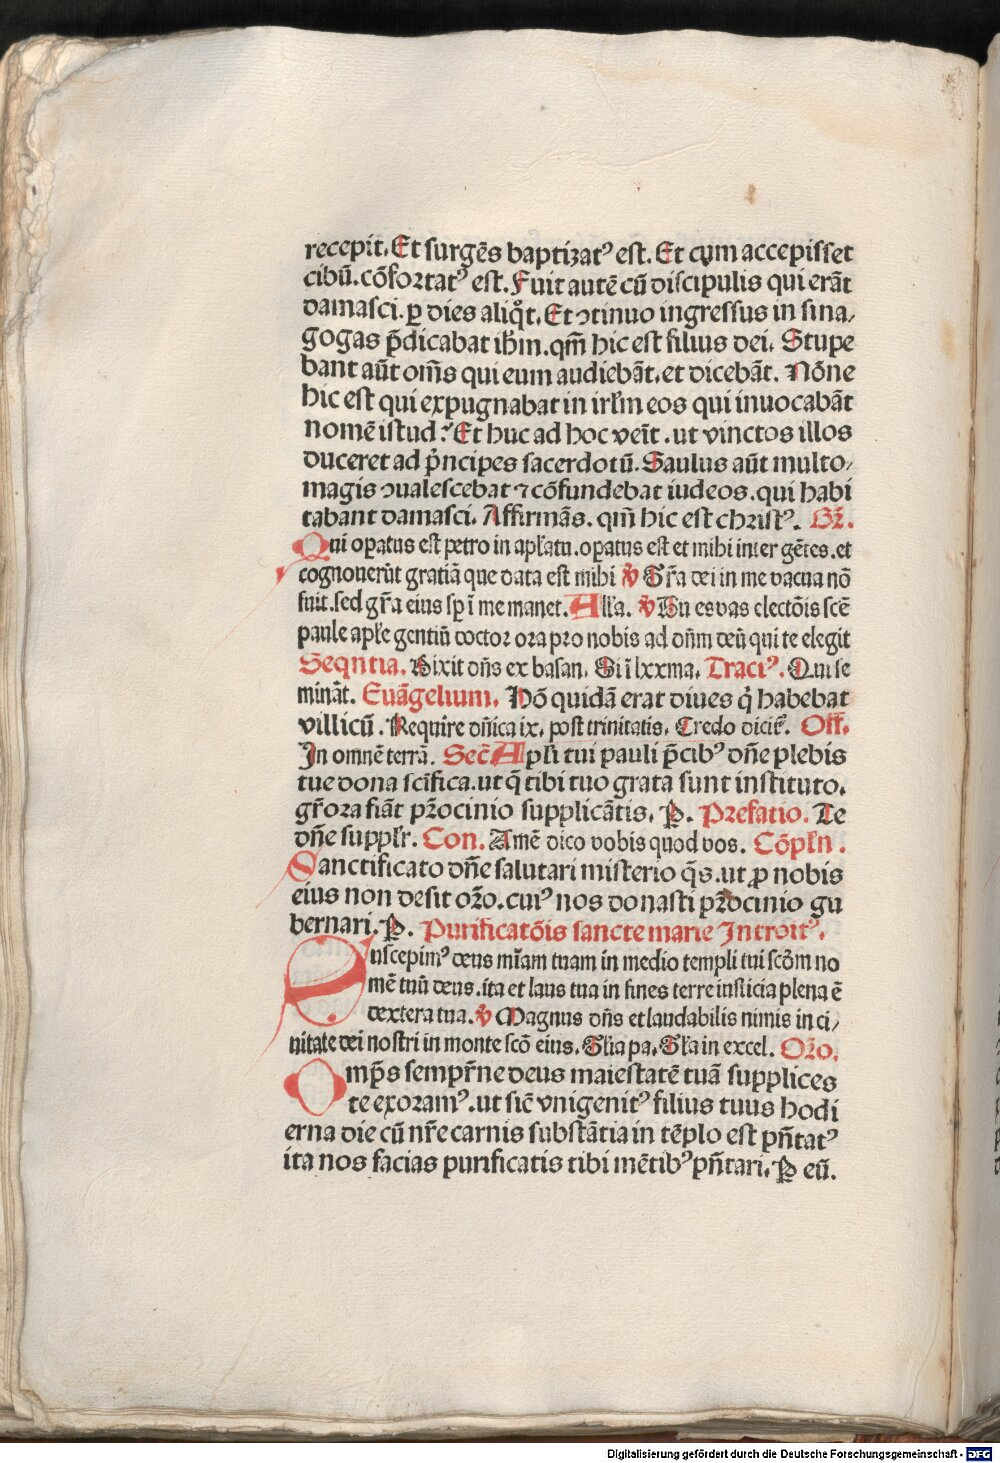 recepit. Et surgēs baptizatꝰ est. Et cum accepisset
cibū. cōfortatꝰ est. Fuit autē cū discipulis qui erāt
damasci. ꝑ dies aliq̊t. Et ↄtinuo ingressus in sina⸗
gogas p̄dicabat ihm̄. qm̄ hic est filius dei. Stupe
bant aūt om̄s qui eum audiebāt. et dicebāt. Nōne
hic est qui expugnabat in irlm̄ eos qui inuocabāt
nomē istud? Et huc ad hoc veīt. ut vinctos illos
duceret ad p̍ncipes sacerdotū. Saulus aūt multo⸗
magis ↄualescebat ⁊ cōfundebat iudeos. qui habi
tabant damasci. Affirmās. qm̄ hic est christꝰ. Gr̄.
Qui oꝑatus est petro in apl̄atu. oꝑatus est et mihi inter gētes. et
cognouerūt gratiā que data est mihi ℣ Gr̄a dei in me vacua nō
fuit. sed gr̄a eius sꝑ ī me manet. All̄a. ℣ Tu es vas electōis scē
paule apl̄e gentiū doctor ora pro nobis ad dn̄m deū qui te elegit
Seqntia. Dixit dn̄s ex basan. Si ī lxxma. Tractꝰ. Qui se
mināt. Euāgelium. Hō quidā erat diues q̍ habebat
villicū. Require dn̄ica ix. post trinitatis. Credo dicit᷑. Off̄.
In omnē terrā. Sec̄ Apl̄i tui pauli p̄cibꝰ dn̄e plebis
tue dona scīfica. ut q̄ tibi tuo grata sunt instituto.
gr̄ora fiāt pr̄ocinio supplicātis. P. Prefatio. Te
dn̄e suppl̄r. Con. Amē dico vobis quod vos. Cōpl̄n.
Sanctificato dn̄e salutari misterio q̄s. ut ꝓ nobis
eius non desit or̄o. cuiꝰ nos donasti pr̄ocinio gu
bernari. P. Purificatōis sancte marie Introitꝰ.
Suscepimꝰ deus mīam tuam in medio templi tui scōm no
mē tuū deus. ita et laus tua in fines terre iusticia plena ē
dextera tua. ℣ Magnus dn̄s et laudabilis nimis in ci⸗
uitate dei nostri in monte scō eius. Gl̄ia pa. Gl̄a in excel. Or̄o.
Omp̄s sempr̄ne deus maiestatē tuā supplices
te exoramꝰ. ut sic̄ vnigenitꝰ filius tuus hodi
erna die cū nr̄e carnis substātia in tēplo est pn̄tatꝰ
ita nos facias purificatis tibi mētibꝰ pn̄tari. P eū.
Digitalisierung gefördert durch die Deutsche Forschungsgemeinschaft - DFG